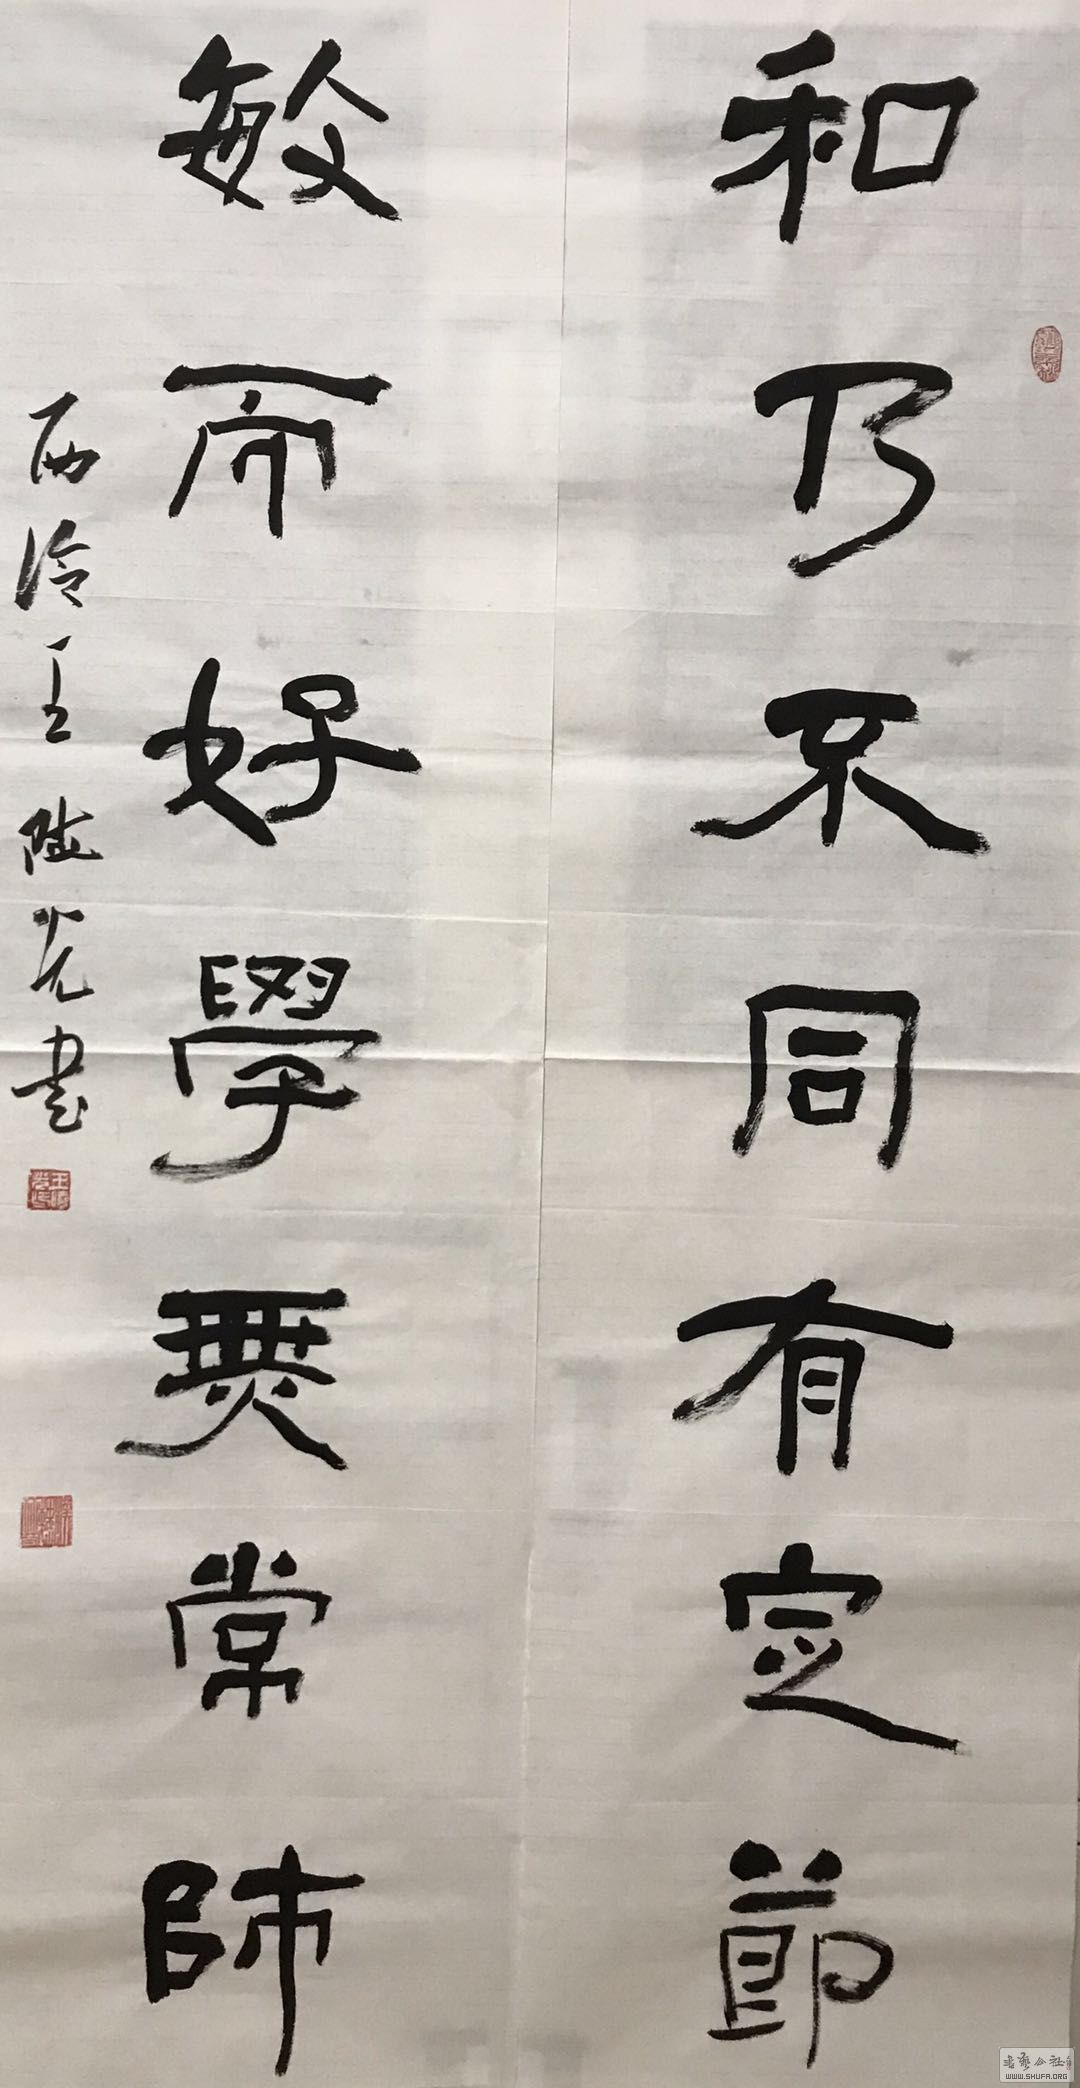 和乃不同有定節
敏而好學無常師
西泠王陡光書
書藝公社
WWW.SHUFA.ORG